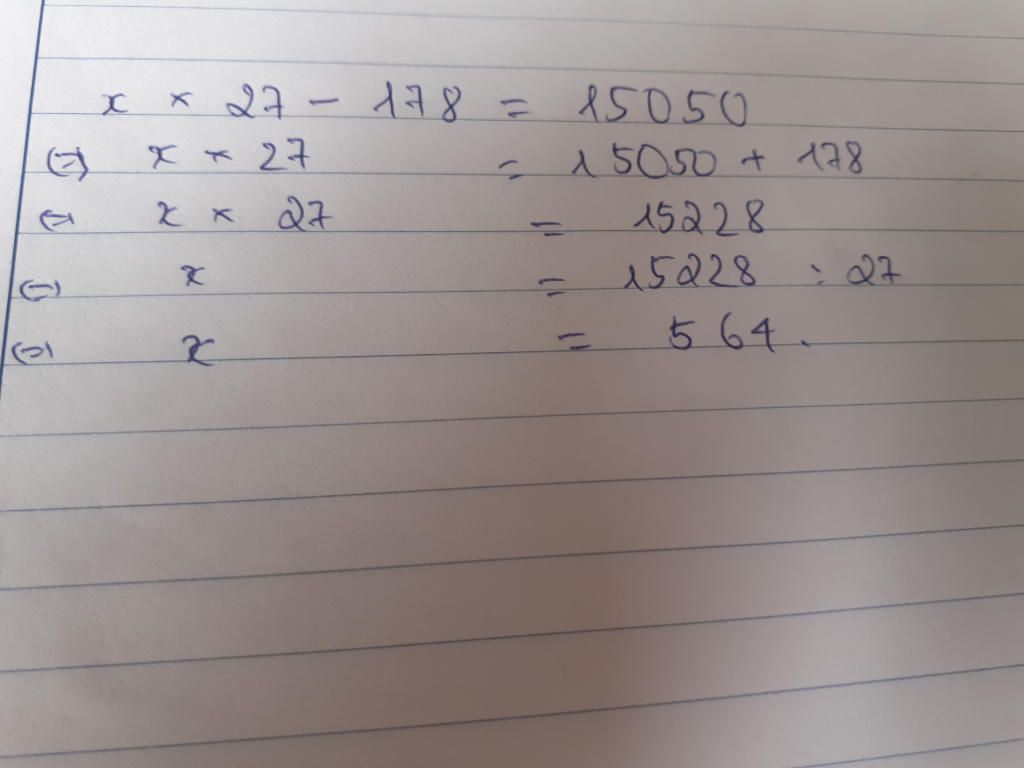 x × 27 - 178 = 15050
(=) x × 27 = 15050 + 178
(=) x × 27 = 15228
(=) x = 15228 : 27
(=) x = 564.